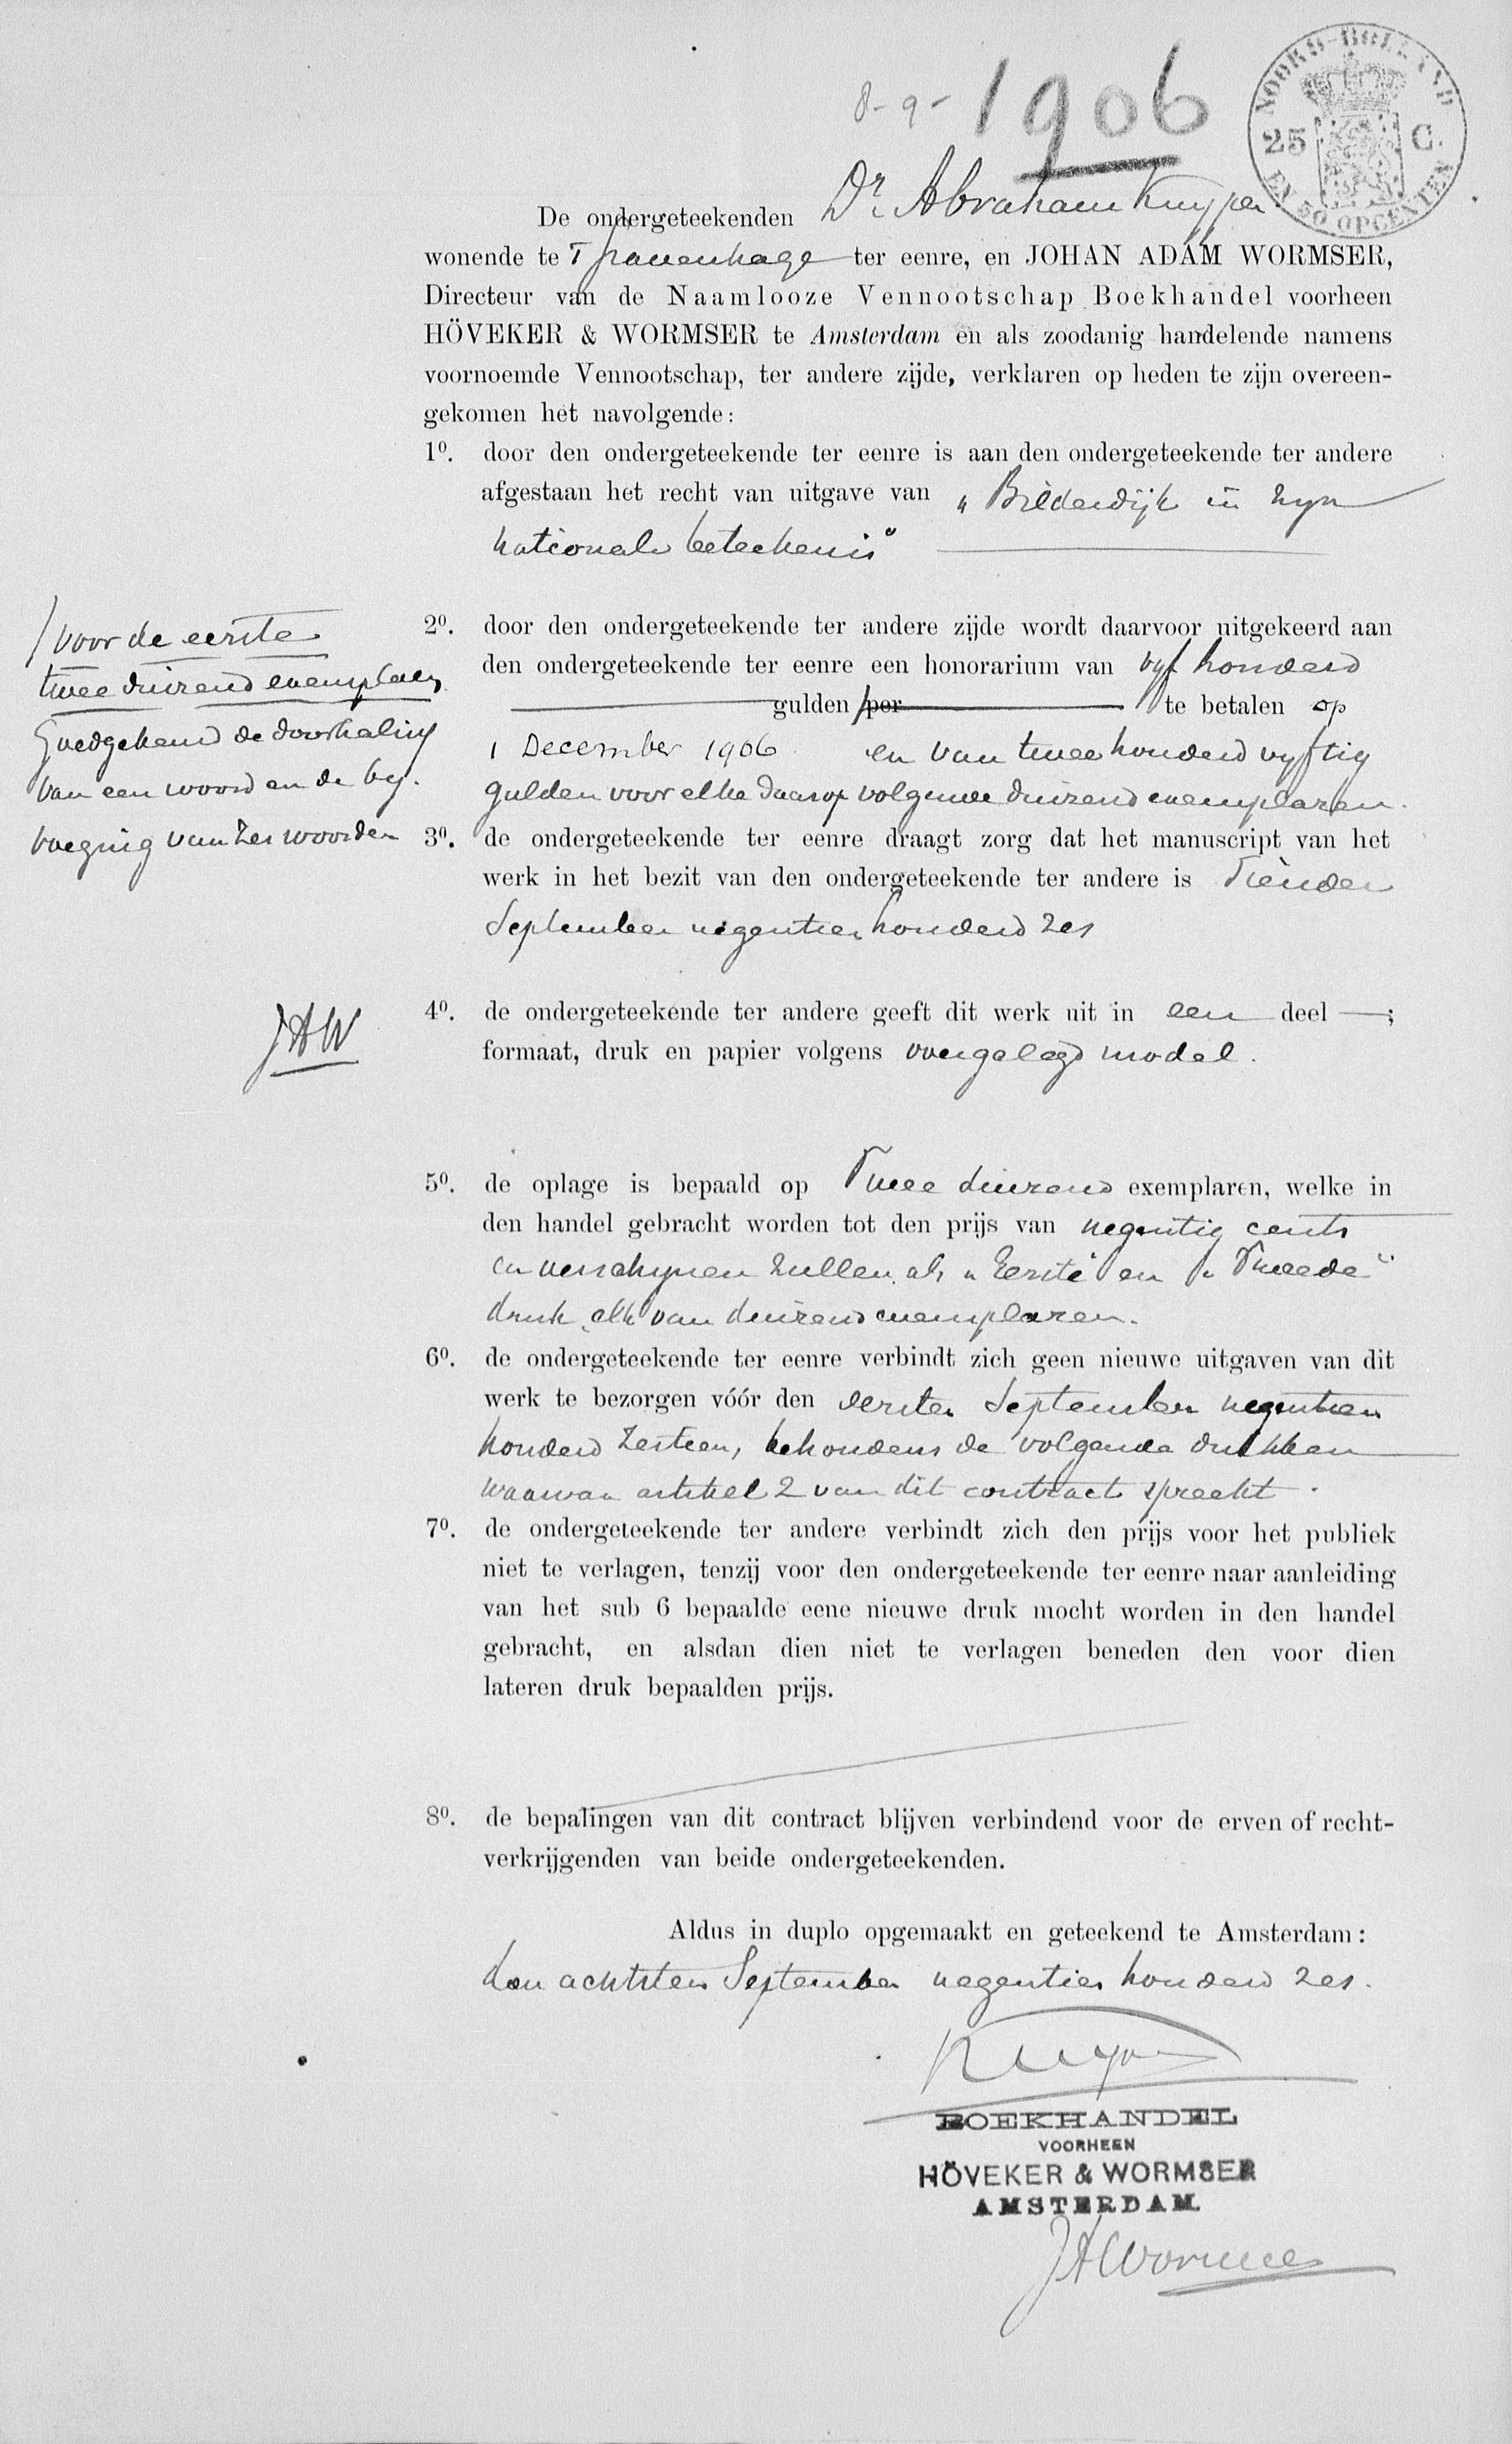 8-9-1906
NOORD-HOLLAND
25 C.
EN 50 OPCENTEN
De ondergeteekenden Dr. Abraham Kuyper
wonende te 's Gravenhage ter eenre, en JOHAN ADAM WORMSER,
Directeur van de Naamlooze Vennootschap Boekhandel voorheen
HÖVEKER & WORMSER te Amsterdam en als zoodanig handelende namens
voornoemde Vennootschap, ter andere zijde, verklaren op heden te zijn overeen-
gekomen het navolgende:
1º. door den ondergeteekende ter eenre is aan den ondergeteekende ter andere
afgestaan het recht van uitgave van „Bilderdijk in zijn
nationale beteekenis"
2º. door den ondergeteekende ter andere zijde wordt daarvoor uitgekeerd aan
den ondergeteekende ter eenre een honorarium van vyf honderd
gulden / per te betalen op
1 December 1906 en van twee honderd vyftig
gulden voor elke daarop volgende duizend exemplaren.
/ voor de eerste
twee duizend exemplaren
Goedgekeurd de doorhaling
van een woord en de by-
voeging van zes woorden
JAW
3º. de ondergeteekende ter eenre draagt zorg dat het manuscript van het
werk in het bezit van den ondergeteekende ter andere is Tienden
September negentien honderd zes
4º. de ondergeteekende ter andere geeft dit werk uit in een deel ;
formaat, druk en papier volgens overgelegd model.
5º. de oplage is bepaald op Twee duizend exemplaren, welke in
den handel gebracht worden tot den prijs van negentig cents
en verschynen zullen als „Eerste" en „Tweede"
druk, elk van duizend exemplaren.
6º. de ondergeteekende ter eenre verbindt zich geen nieuwe uitgaven van dit
werk te bezorgen vóór den eersten September negentien
honderd zestien, behoudens de volgende drukken
waarvan artikel 2 van dit contract spreekt.
7º. de ondergeteekende ter andere verbindt zich den prijs voor het publiek
niet te verlagen, tenzij voor den ondergeteekende ter eenre naar aanleiding
van het sub 6 bepaalde eene nieuwe druk mocht worden in den handel
gebracht, en alsdan dien niet te verlagen beneden den voor dien
lateren druk bepaalden prijs.
8º. de bepalingen van dit contract blijven verbindend voor de erven of recht-
verkrijgenden van beide ondergeteekenden.
Aldus in duplo opgemaakt en geteekend te Amsterdam:
den achtsten September negentien honderd zes.
Kuyper
BOEKHANDEL
VOORHEEN
HÖVEKER & WORMSER
AMSTERDAM.
JAWormser